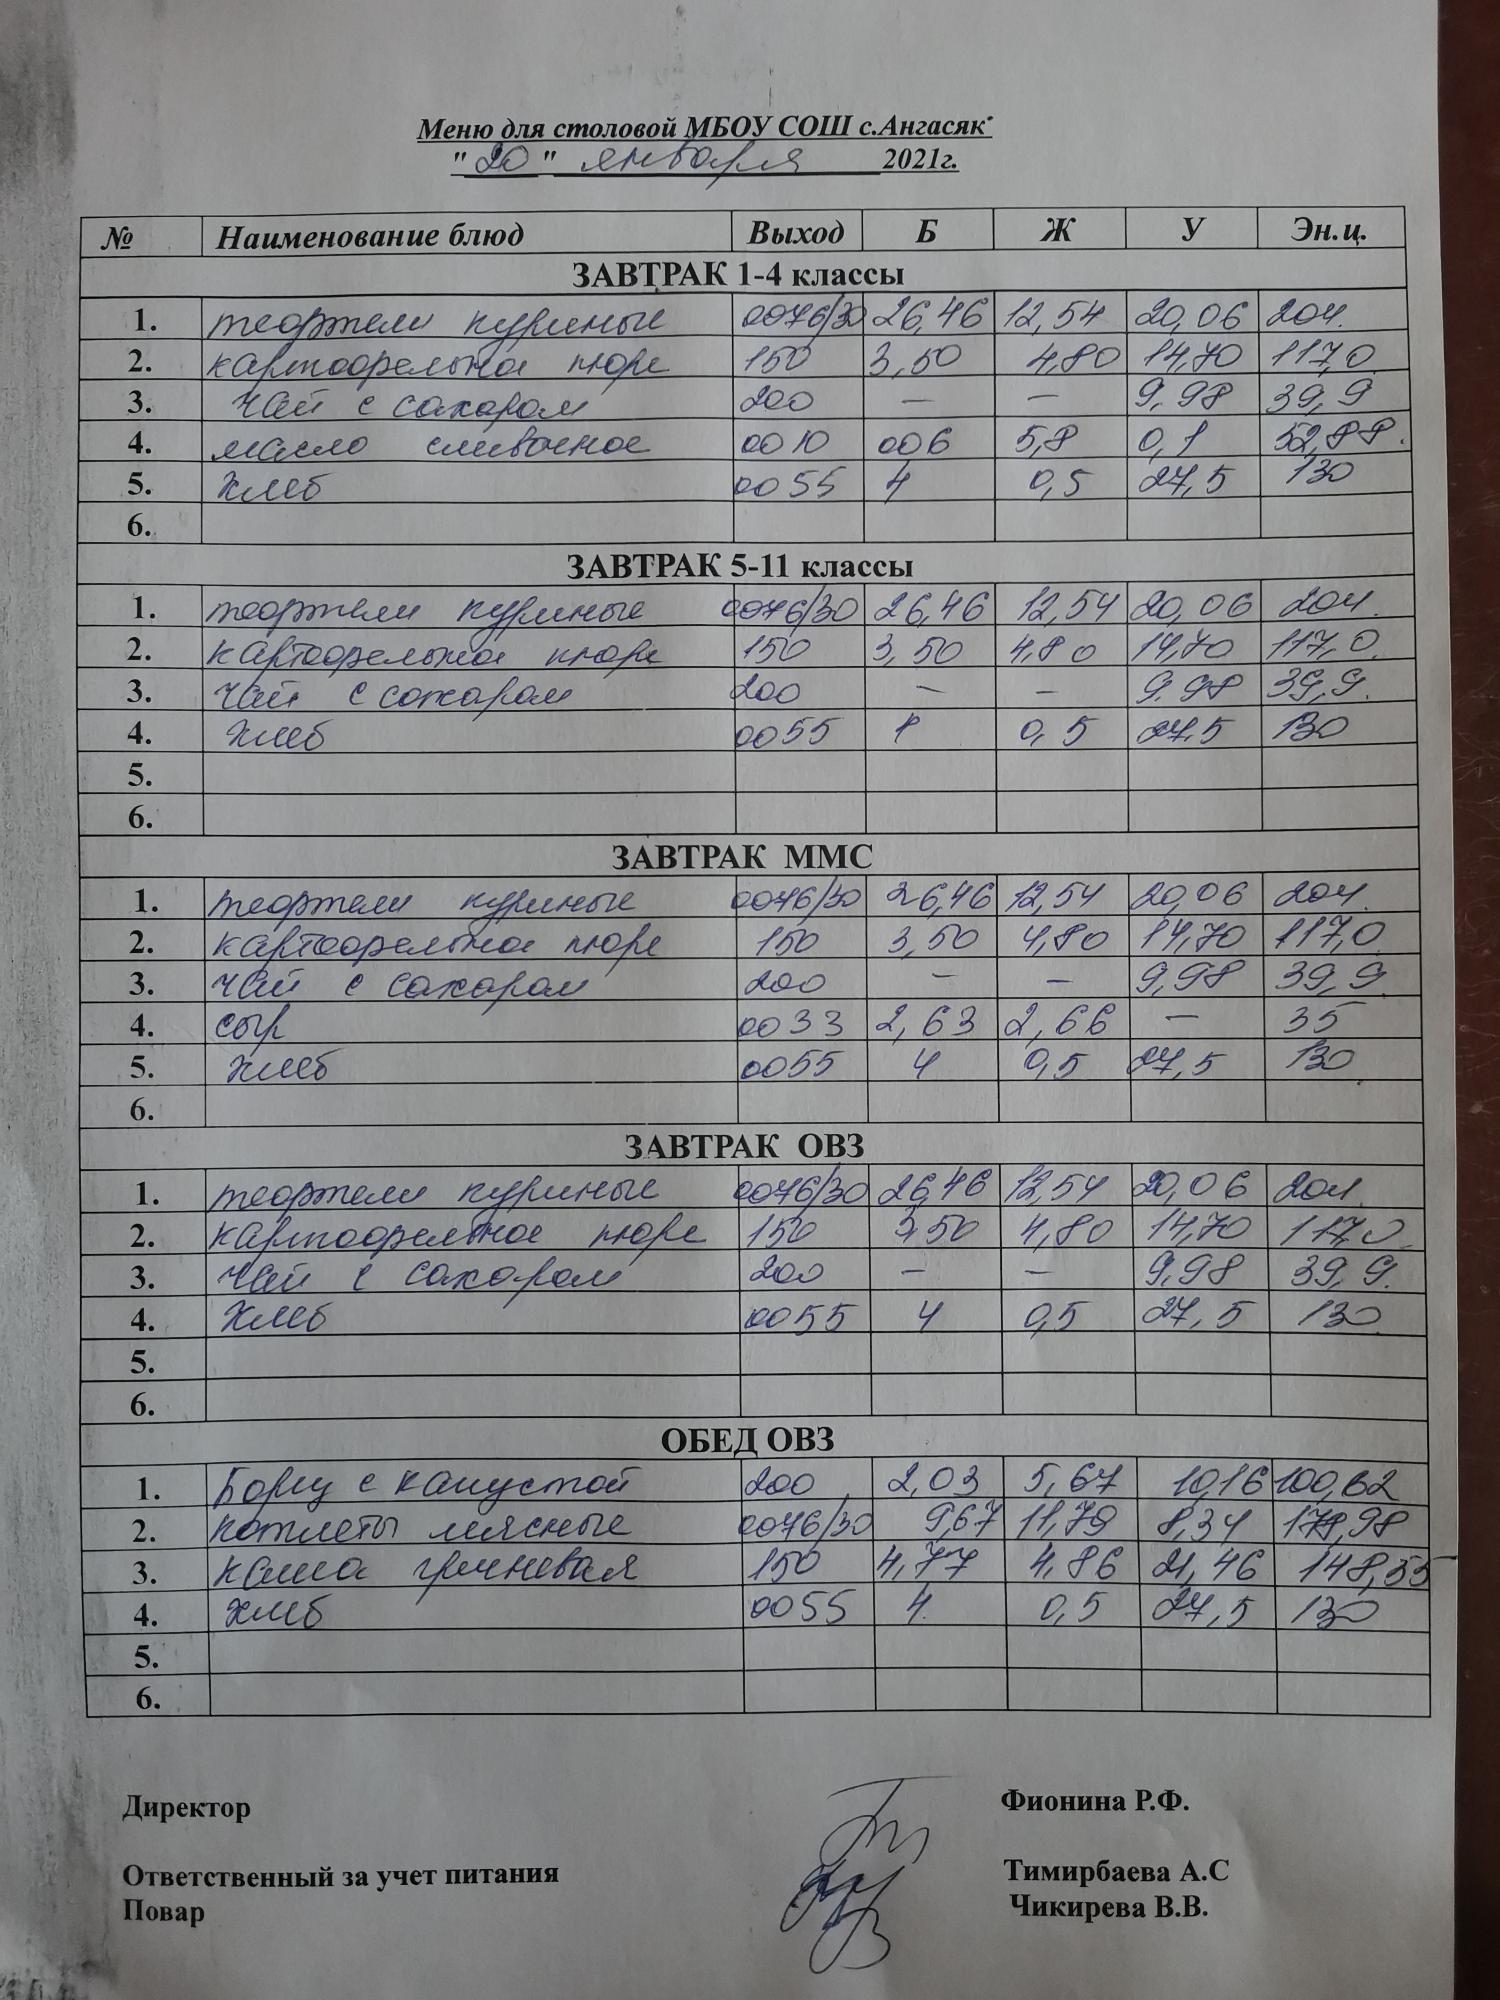 Меню для столовой МБОУ СОШ с.Ангасяк
"20" января 2021г.
№ Наименование блюд Выход Б Ж У Эн.ц.
ЗАВТРАК 1-4 классы
1. тефтели куриные 0076/30 26,46 12,54 20,06 204.
2. картофельное пюре 150 3,50 4,80 14,70 117,0
3. Чай с сахаром 200 — — 9,98 39,9
4. масло сливочное 0010 006 5,8 0,1 52,88.
5. Хлеб 0055 4 0,5 27,5 130
6.
ЗАВТРАК 5-11 классы
1. тефтели куриные 0076/30 26,46 12,54 20,06 204.
2. картофельное пюре 150 3,50 4,80 14,70 117,0.
3. Чай с сахаром 200 — — 9,98 39,9.
4. Хлеб 0055 0,5 27,5 130
5.
6.
ЗАВТРАК ММС
1. тефтели куриные 0076/30 26,46 12,54 20,06 204.
2. картофельное пюре 150 3,50 4,80 14,70 117,0
3. Чай с сахаром 200 — — 9,98 39,9
4. сыр 0033 2,63 2,66 — 35
5. Хлеб 0055 4 0,5 27,5 130
6.
ЗАВТРАК ОВЗ
1. тефтели куриные 0076/30 26,46 12,54 20,06 204.
2. картофельное пюре 150 3,50 4,80 14,70 117,0
3. Чай с сахаром 200 — — 9,98 39,9.
4. Хлеб 0055 4 0,5 27,5 130
5.
6.
ОБЕД ОВЗ
1. Борщ с капустой 200 2,03 5,67 10,16 100,62
2. котлеты мясные 0076/30 9,67 11,79 8,34
3. каша гречневая 150 4,77 4,86 21,46 148,55
4. Хлеб 0055 4. 0,5 27,5 130
5.
6.
Директор Фионина Р.Ф.
Ответственный за учет питания Тимирбаева А.С
Повар Чикирева В.В.